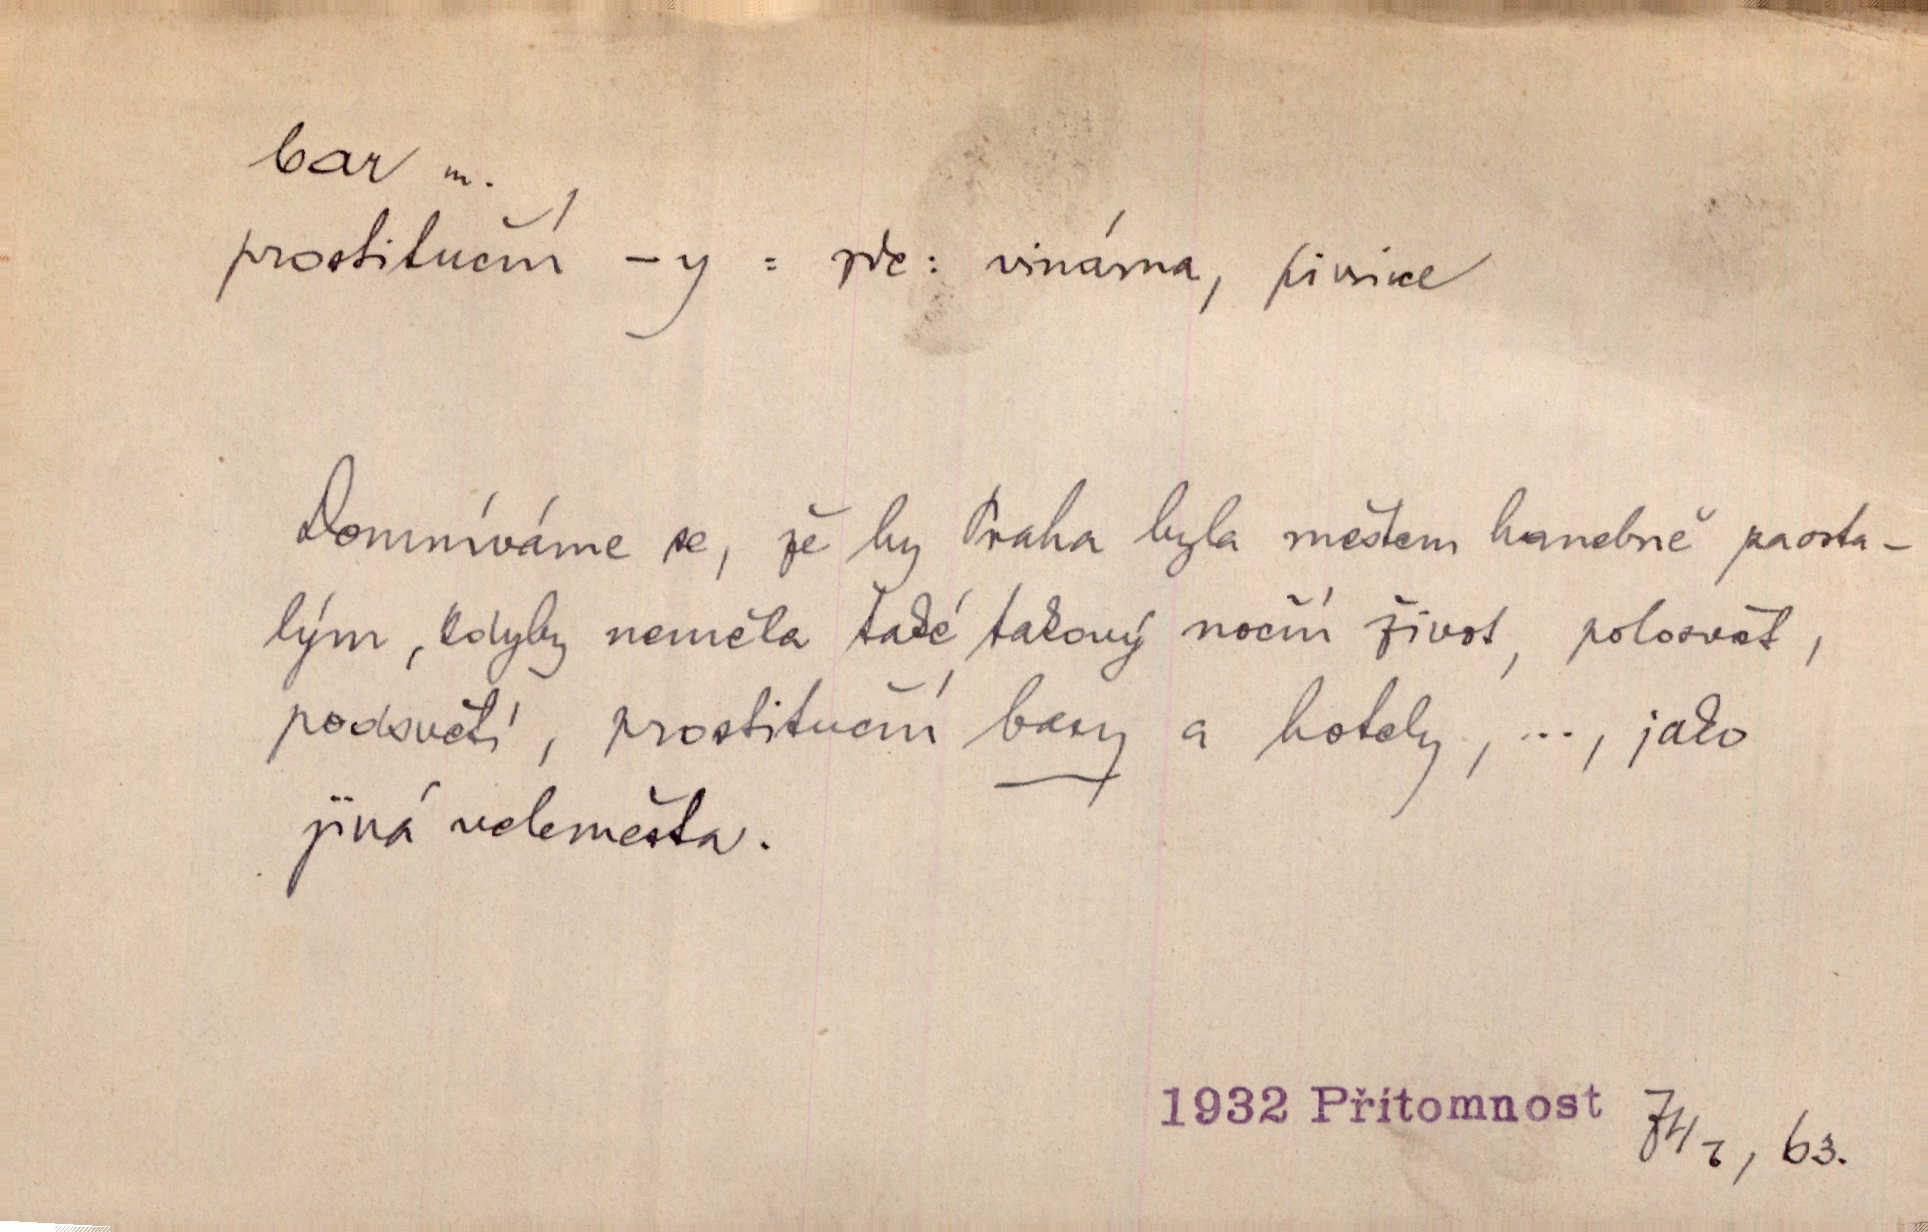 bar m.
prostituční -y = zde: vinárna, pivnice
Domníváme se, že by Praha byla městem hanebně zaosta-
lým, kdyby neměla také takový noční život, polosvět,
podsvětí, prostituční bary a hotely, ..., jako
jiná veleměsta.
1932 Přítomnost
, 63.